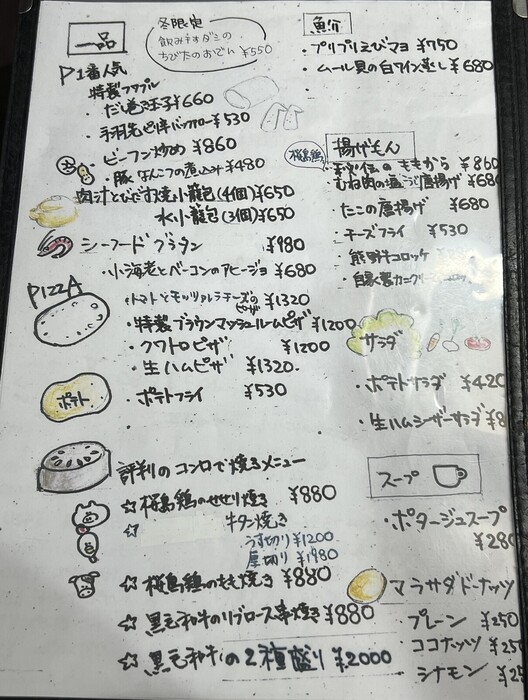 一品
冬限定
飲み干すダシの
ちびたのおでん ¥550
1番人気
特製フワプル
・だし巻き玉子¥660
・手羽先ピ辛バッファロー¥530
・ビーフン炒め ¥860
・豚なんこつの煮込み¥480
肉汁とびです焼小籠包(4個)¥650
水小籠包(3個)¥650
シーフードグラタン ¥980
・小海老とベーコンのアヒージョ ¥680
PIZZA
・トマトとモッツァレラチーズのピザ ¥1320
・特製ブラウンマッシュルームピザ ¥1200
・クワトロピザ ¥1200
・生ハムピザ ¥1320.
ポテト
・ポテトフライ ¥530
評判のコンロで焼きメニュー
☆ 桜島鶏のせせり焼き ¥880
☆ 牛タン焼き
うす切り ¥1200
厚切り ¥1980
☆ 桜島鶏のもも焼き ¥880
☆ 黒毛和牛のリブロース串焼き ¥880
☆ 黒毛和牛の2種盛り ¥2000
魚介
・プリプリえびマヨ ¥750
・ムール貝の白ワイン蒸し ¥680
揚げもん
桜島鶏
ももから ¥860
むね肉の塩 唐揚げ ¥680
・たこの唐揚げ ¥680
・チーズフライ ¥530
・熊野牛コロッケ
・自家製カニクリー
サラダ
・ポテトサラダ ¥420
・生ハムシーザーサラダ ¥8
スープ
・ポタージュスープ
¥280
マラサダドーナッツ
・プレーン ¥250
ココナッツ ¥25
シナモン ¥25